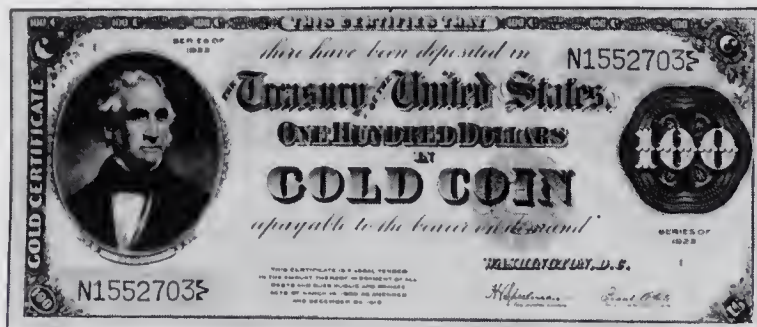 THIS CERTIFIES THAT
SERIES OF
1922
there have been deposited in
N1552703
THE Treasury OF THE United States
ONE HUNDRED DOLLARS
IN
GOLD COIN
payable to the bearer on demand
100
GOLD CERTIFICATE
SERIES OF
1922
WASHINGTON, D.C.
THIS CERTIFICATE IS A LEGAL TENDER
IN THE AMOUNT THEREOF IN PAYMENT OF ALL
DEBTS AND DUES PUBLIC AND PRIVATE
ACTS OF MARCH 14, 1900 AS AMENDED
AND DECEMBER 24, 1919
N1552703
100